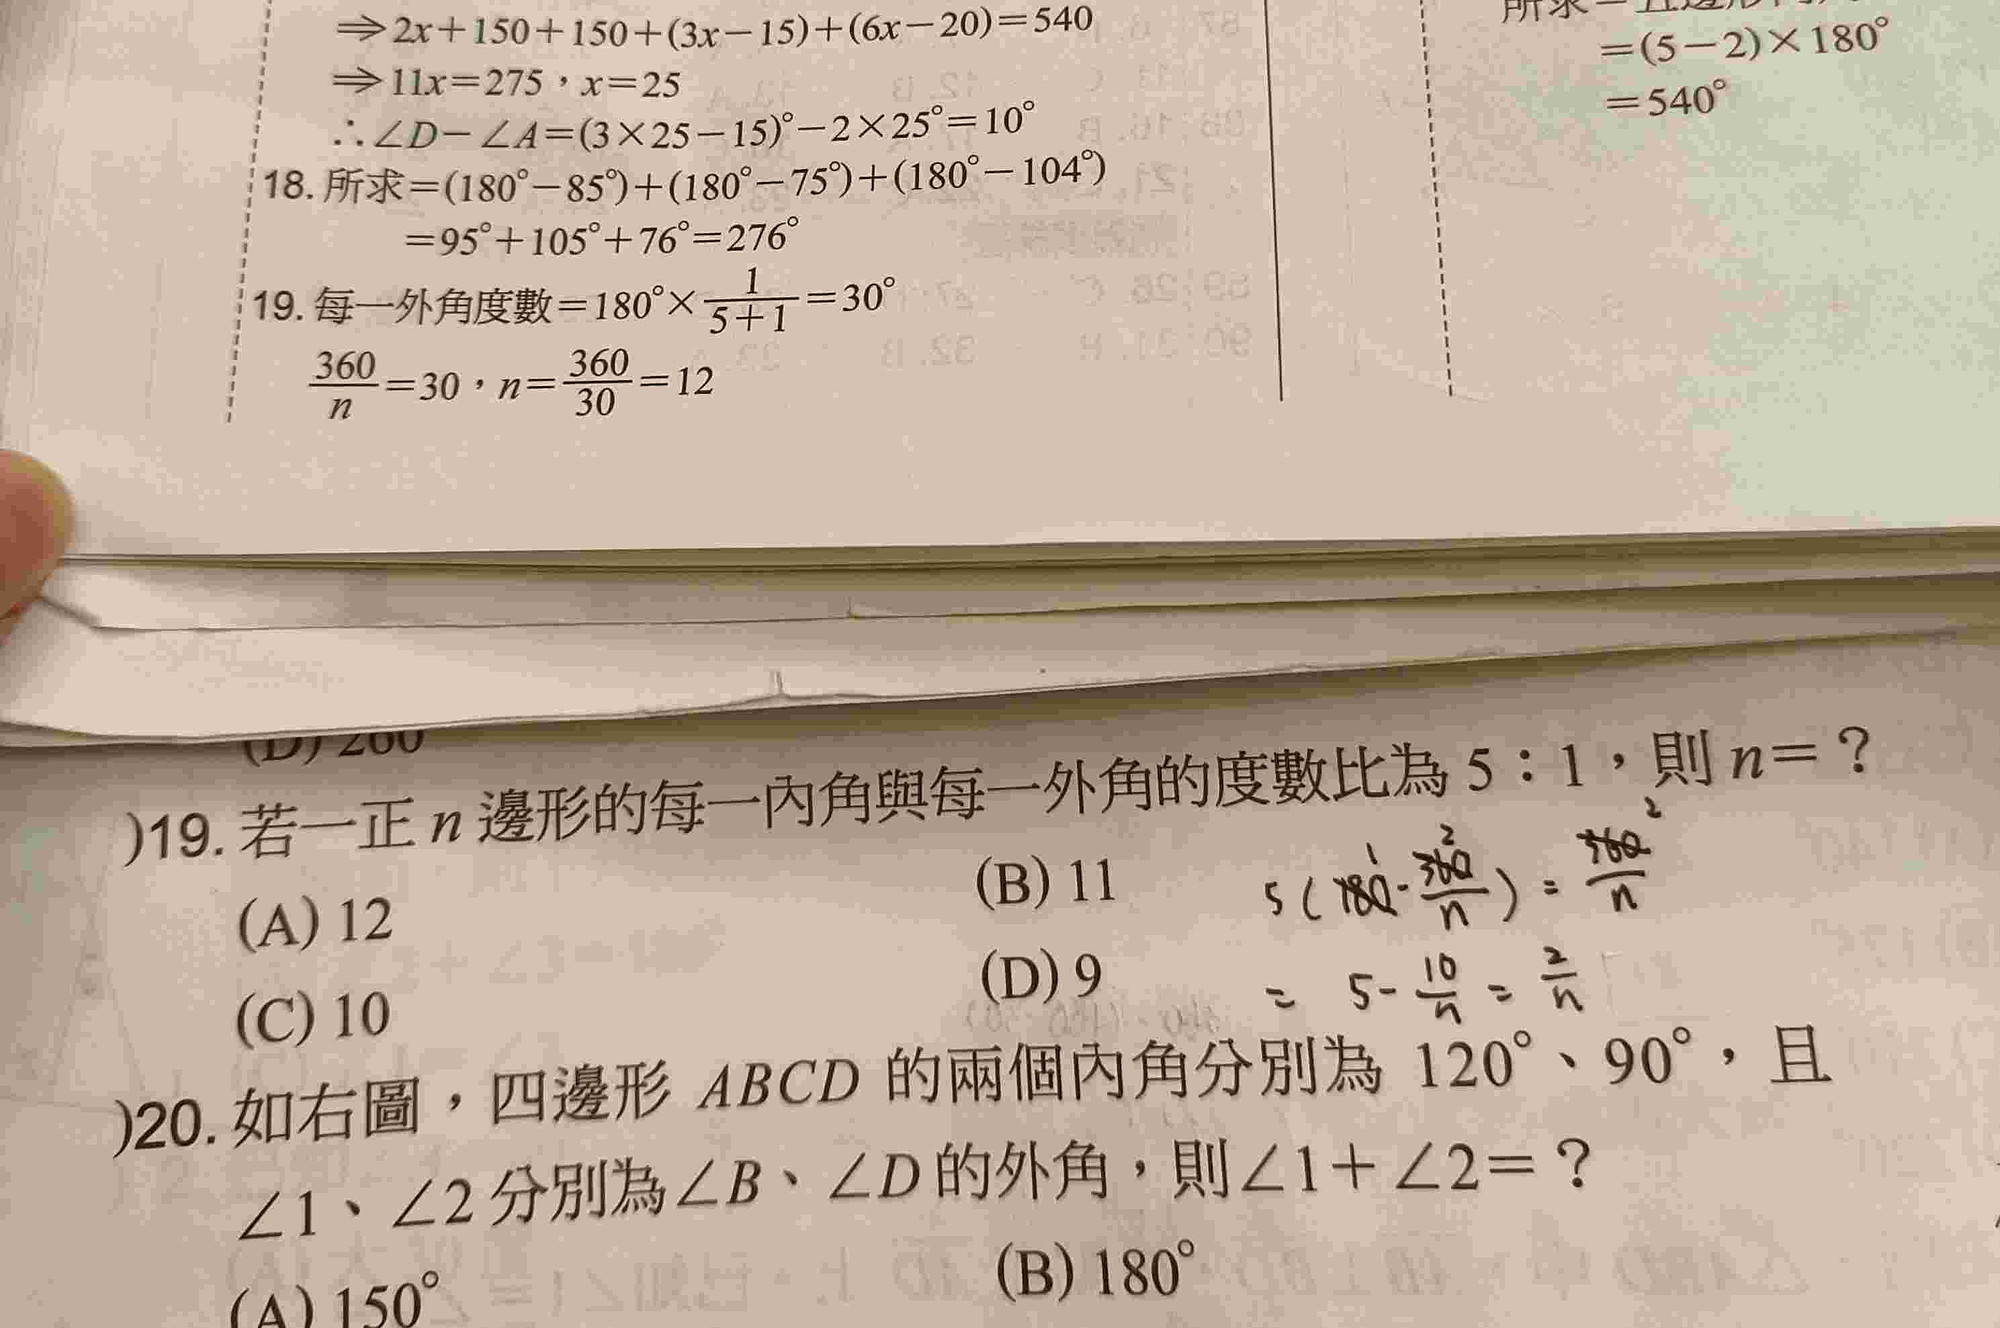 ⇒2x+150+150+(3x−15)+(6x−20)=540
⇒11x=275，x=25
∴∠D−∠A=(3×25−15)°−2×25°=10°
18. 所求=(180°−85°)+(180°−75°)+(180°−104°)
=95°+105°+76°=276°
19. 每一外角度數=180°×1/(5+1)=30°
360/n=30，n=360/30=12
=(5−2)×180°
=540°
(D) 260
)19. 若一正 n 邊形的每一內角與每一外角的度數比為 5：1，則 n=？
(A) 12
(B) 11
(C) 10
(D) 9
5(180-360/n)=360/n
1 2 2
= 5-10/n=2/n
)20. 如右圖，四邊形 ABCD 的兩個內角分別為 120°、90°，且
∠1、∠2 分別為∠B、∠D 的外角，則∠1+∠2=？
(A) 150°
(B) 180°